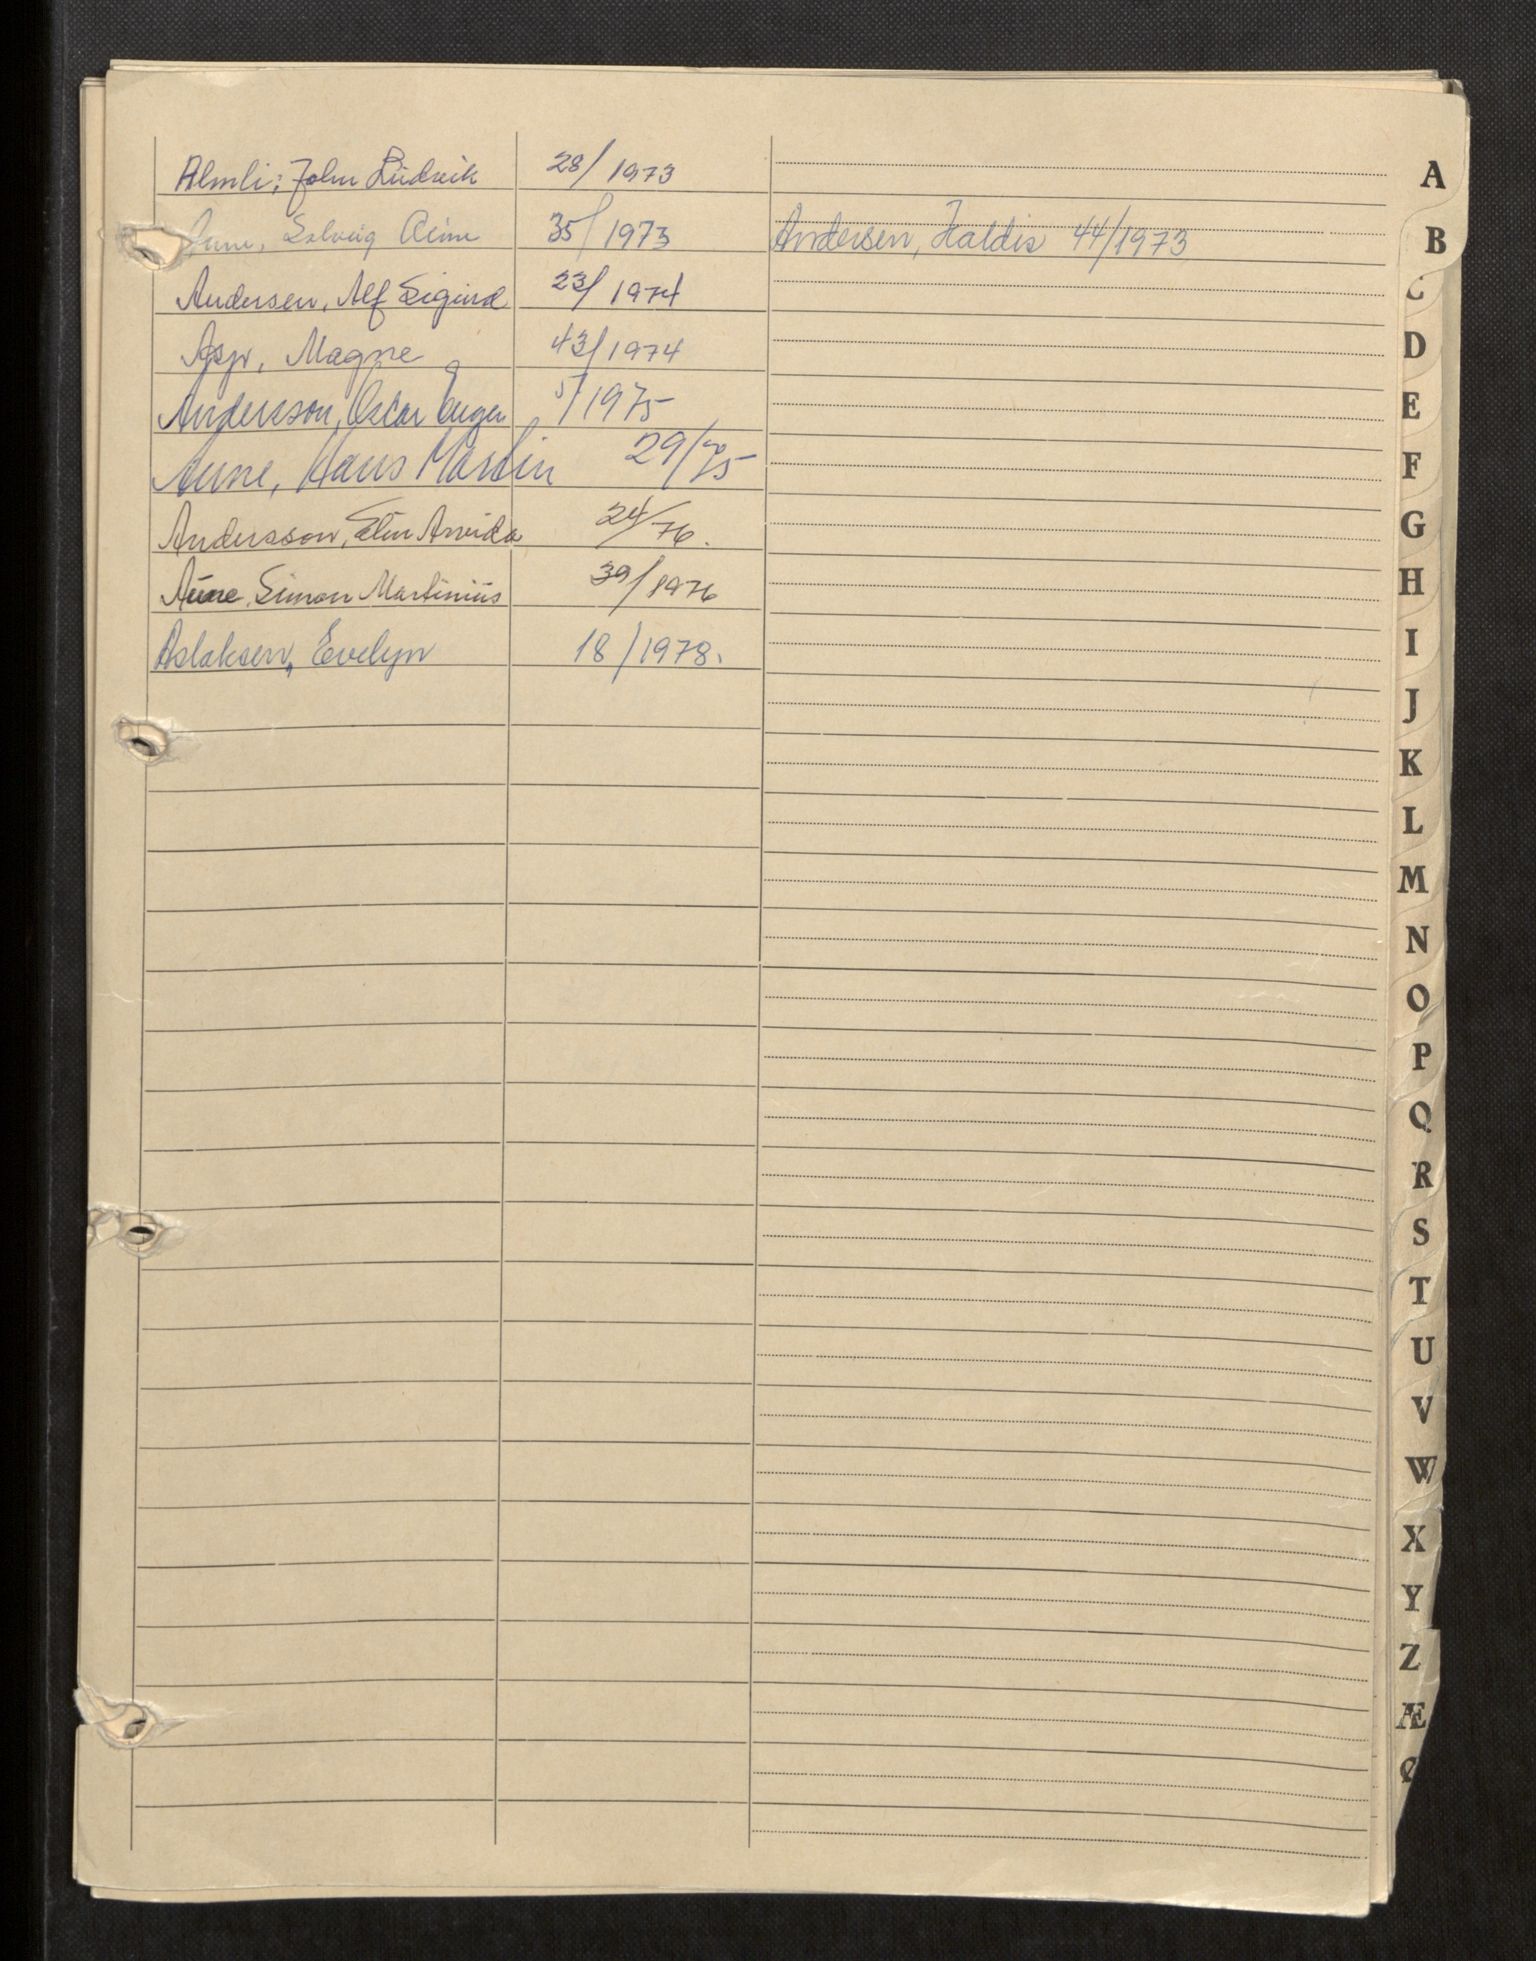 Almli, John Ludvik 28/1973
Solveig 35/1973 Andersen, Haldis 44/1973
Andersen, Alf Sigurd 23/1974
Magne 43/1974
Andersson, Oscar Eugen 5/1975
Aune, Hans Martin 29/75
Andersson, Elin Arvida 24/76.
Aune, Simon Martinius 39/1976
Aslaksen, Evelyn 18/1978.
A
B
C
D
E
F
G
H
I
J
K
L
M
N
O
P
Q
R
S
T
U
V
W
X
Y
Z
Æ
Ø